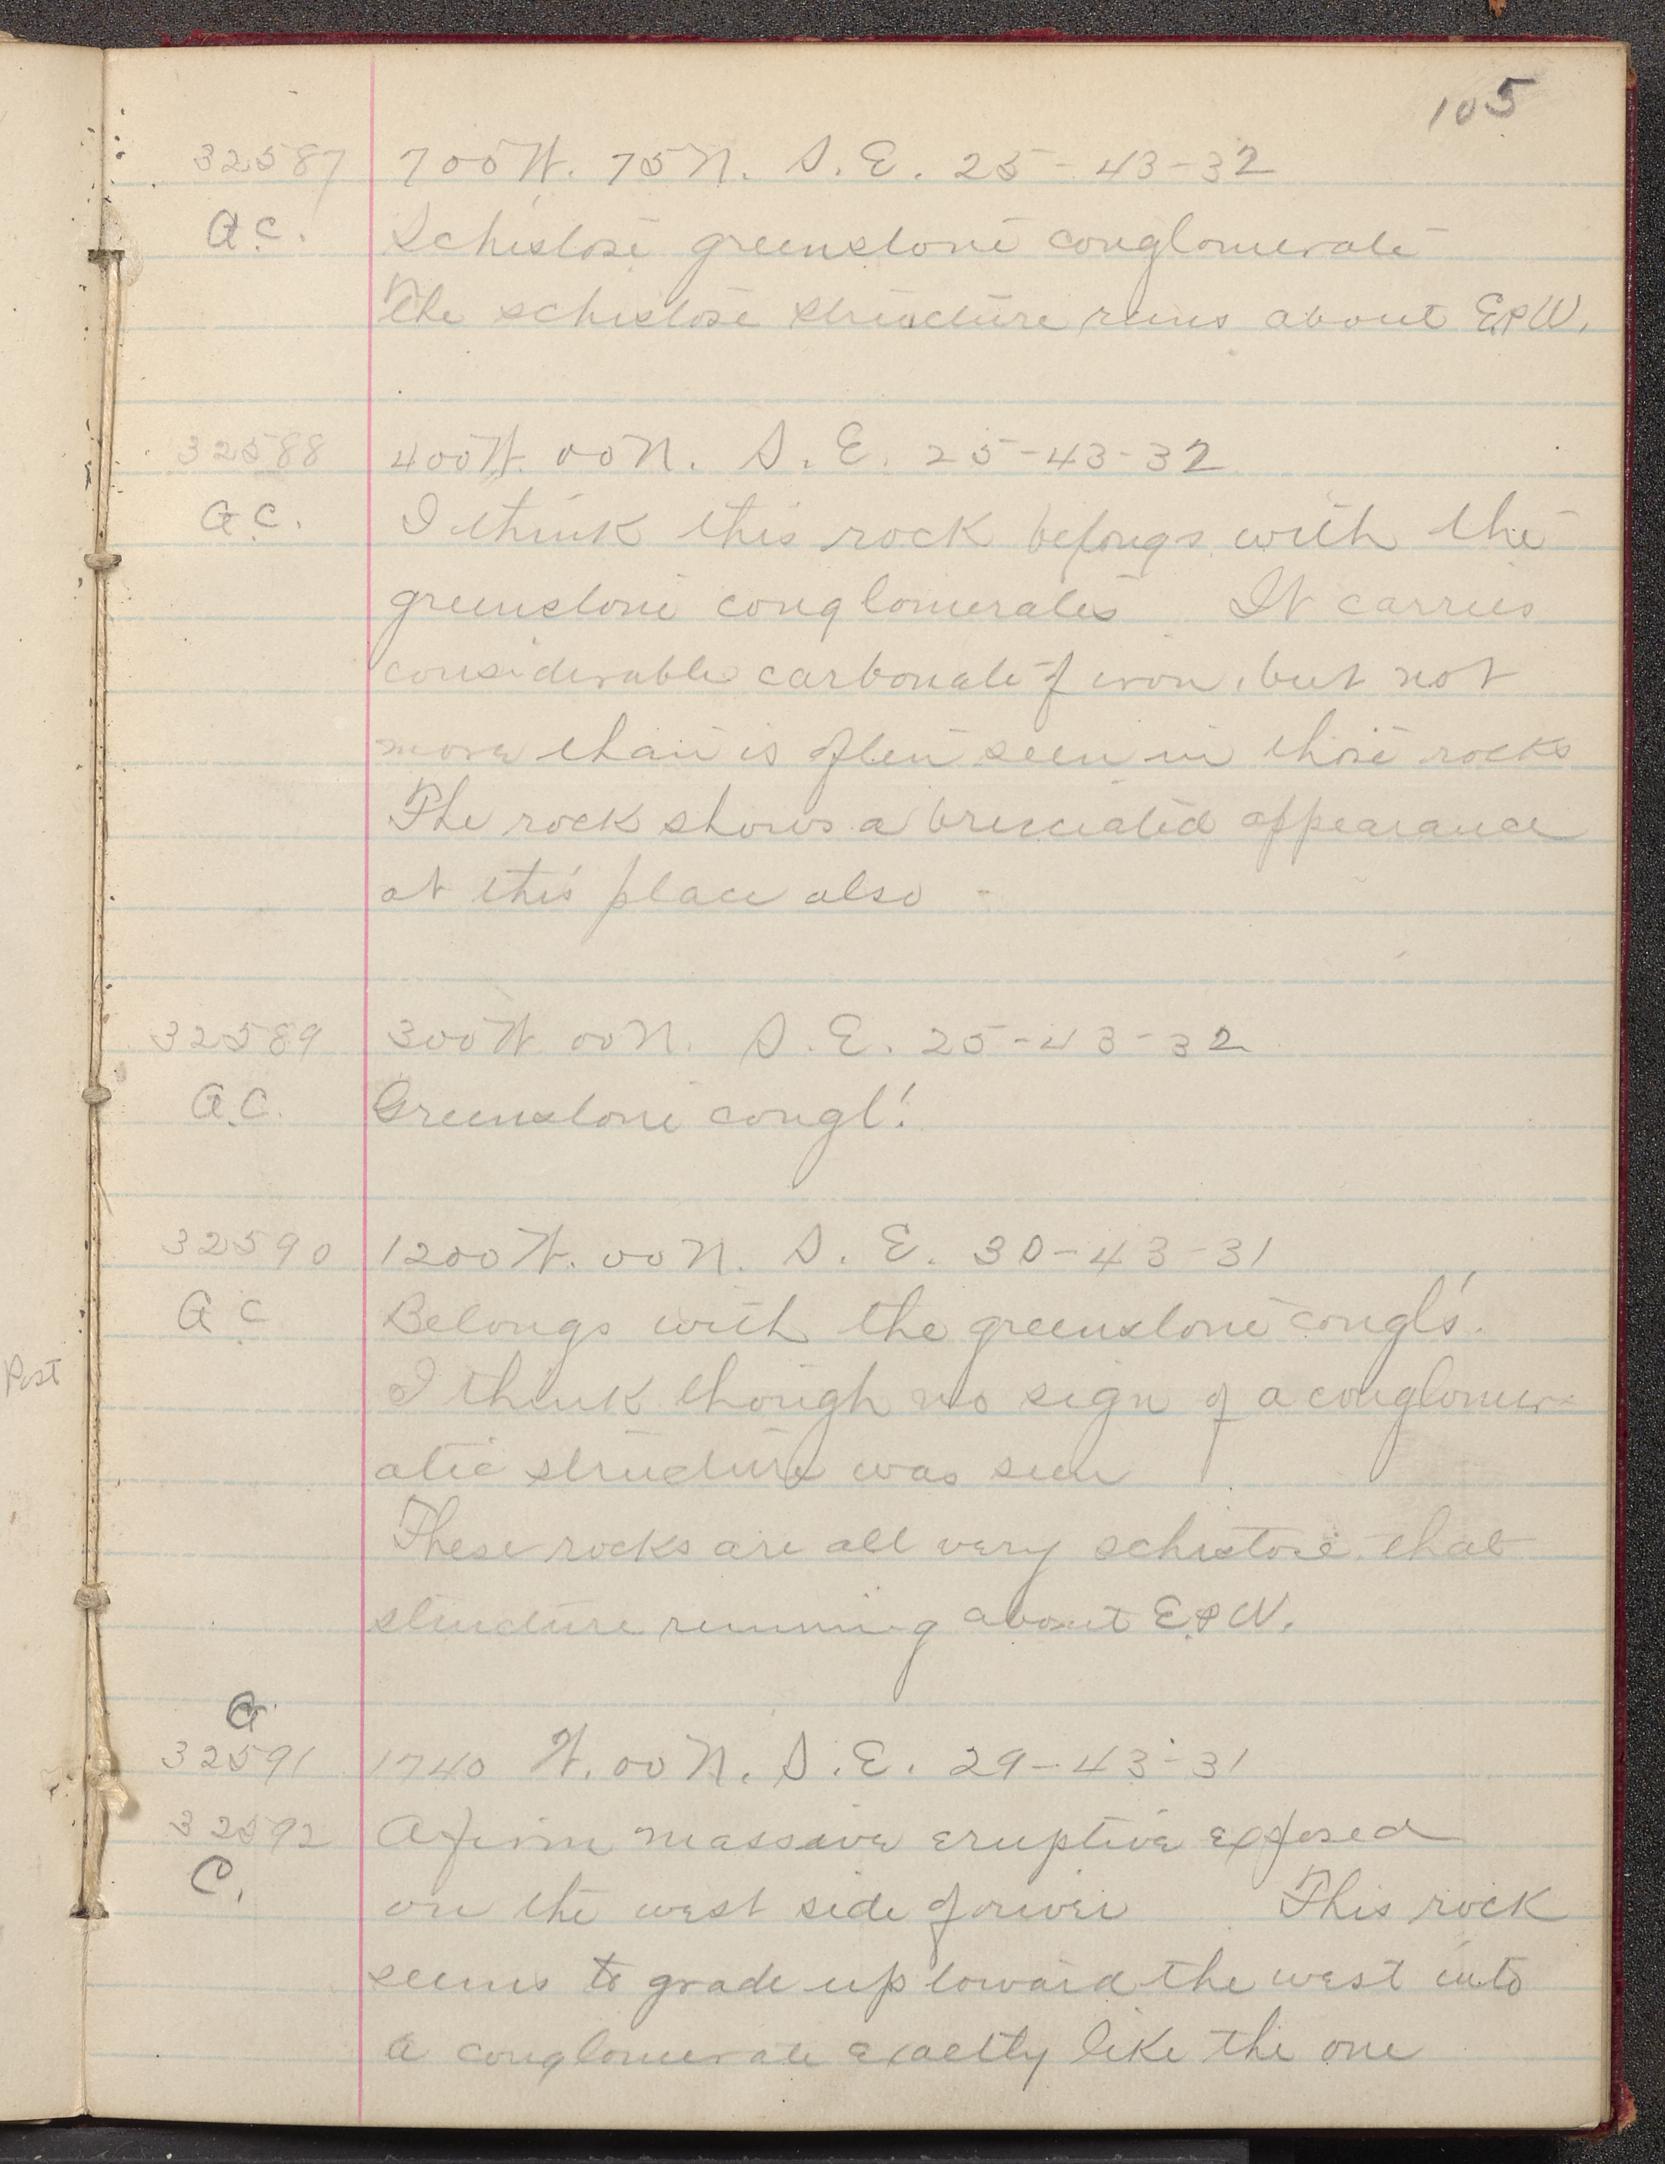 105
32587 700 W. 75 N. S.E. 25-43-32
G.C. Schistose greenstone conglomerate
The schistose structure runs about E & W.
32588 400 W. 00 N. S.E. 25-43-32
G.C. I think this rock belongs with the
greenstone conglomerates It carries
considerable carbonate of iron, but not
more than is often seen in those rocks
The rock shows a brecciated appearance
at this place also -
32589 300 W 00 N. S.E. 25-43-32
G.C. Greenstone congl'.
32590 1200 W. 00 N. S.E. 30-43-31
G C Belongs with the greenstone congl's.
Post
I think though no sign of a conglomer-
atic structure was seen
These rocks are all very schistose that
structure running about E & W.
G.
32591 1740 W. 00 N. S.E. 29-43-31
32592 A firm massive eruptive exposed
C. on the west side of river This rock
seems to grade up toward the west into
a conglomerate exactly like the one